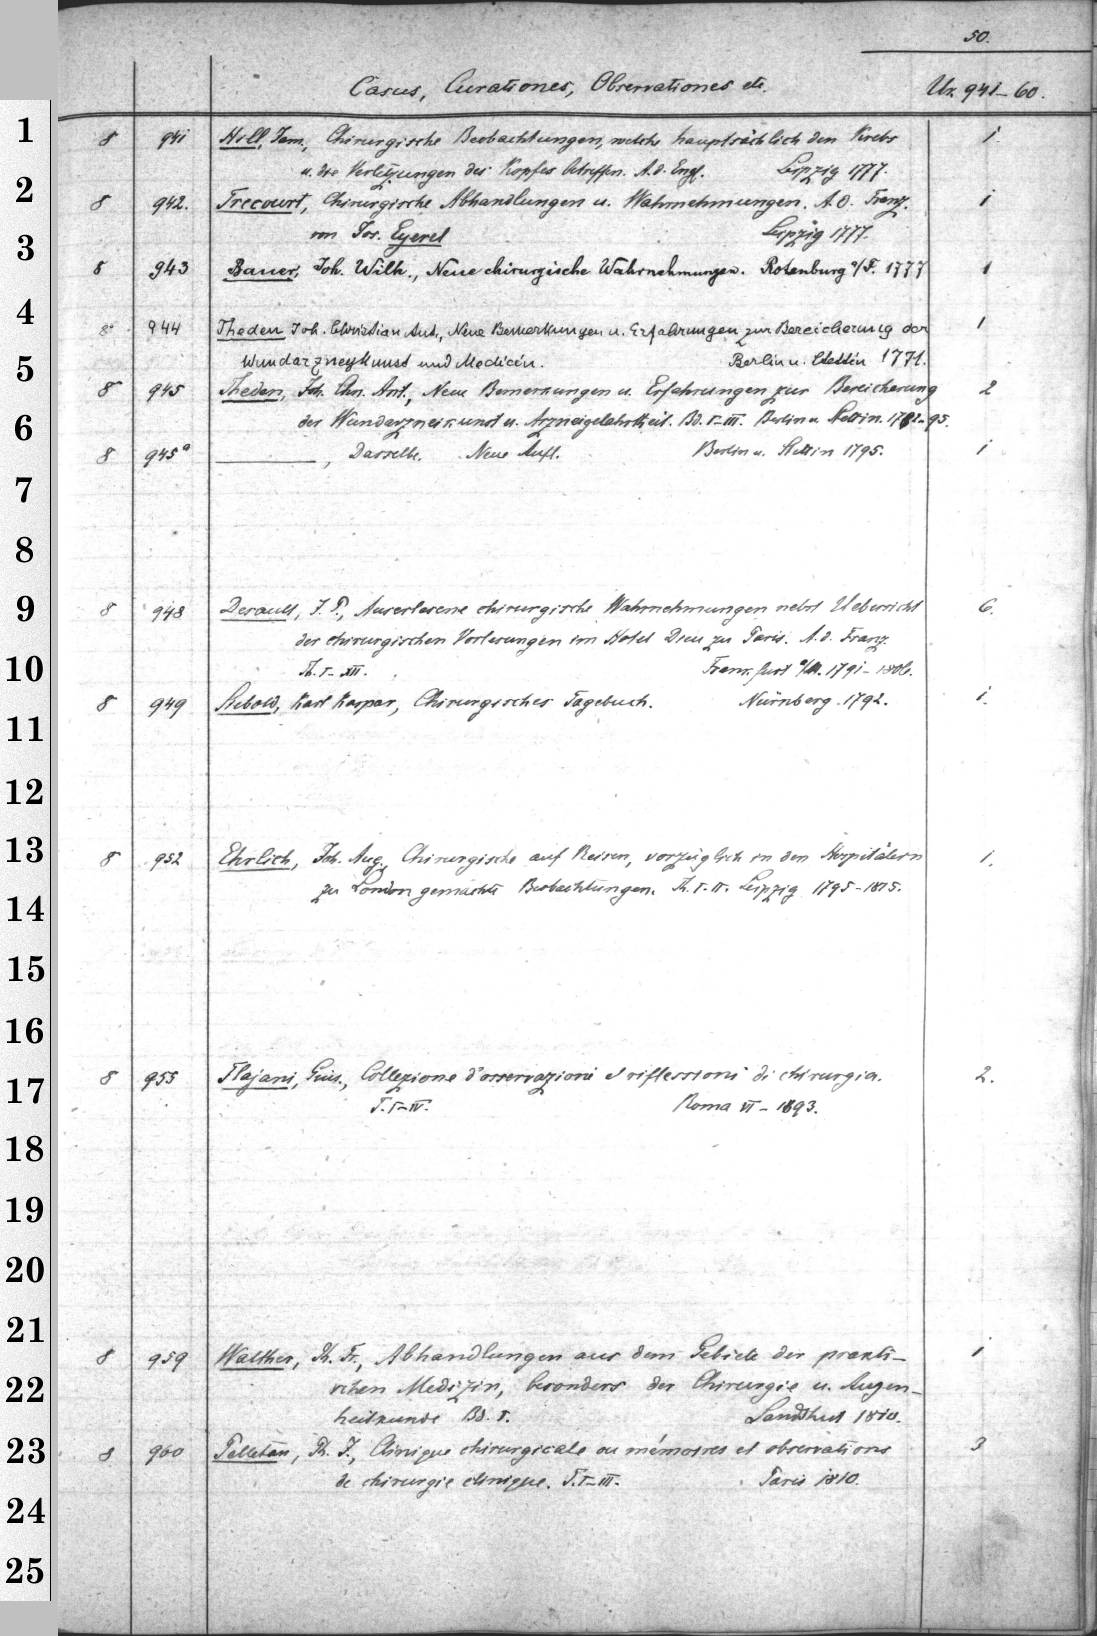 50.
Casus, Curationes, Observationes etc. Uz. 941–60.
8 941 Hill, Jam., Chirurgische Beobachtungen, welche hauptsächlich den Krebs 1.
u. die Verletzungen des Kopfes betreffen. A. d. Engl. Leipzig 1777.
8 942. Trecourt, Chirurgische Abhandlungen u. Wahrnehmungen. A. d. Franz. 1
von Jos. Eyerel Leipzig 1777.
8 943 Bauer, Joh. Wilh., Neue chirurgische Wahrnehmungen. Rotenburg a/F. 1777 1
8 944 Theden Joh. Christian Ant., Neue Bemerkungen u. Erfahrungen zur Bereicherung der 1
Wundarzneykunst und Medicin. Berlin u. Stettin 1771.
8 945 Theden, Joh. Chr. Ant., Neue Bemerkungen u. Erfahrungen zur Bereicherung 2
der Wundarzneikunst u. Arzneigelahrtheit. Bd. I–III. Berlin u. Stettin 1782–95.
8 945a ———, Dasselbe. Neue Aufl. Berlin u. Stettin 1795. 1
8 948 Desault, J. P., Auserlesene chirurgische Wahrnehmungen nebst Uebersicht 6.
der chirurgischen Vorlesungen im Hotel Dieu zu Paris. A. d. Franz.
Th. I–XII. Frankfurt a/M. 1791–1806.
8 949 Siebold, Karl Kaspar, Chirurgisches Tagebuch. Nürnberg 1792. 1.
8 952 Ehrlich, Joh. Aug., Chirurgische auf Reisen, vorzüglich in den Hospitälern 1.
zu London gemachte Beobachtungen. Th. I–II. Leipzig 1795–1815.
8 955 Flajani, Gius., Collezione d'osservazioni e riflessioni di chirurgia. 2.
T. I–IV. Roma VI – 1893.
8 959 Walther, Ph. Fr., Abhandlungen aus dem Gebiete der prakti– 1
schen Medizin, besonders der Chirurgie u. Augen–
heilkunde Bd. I. Landshut 1810.
8 960 Pelletan, Ph. J., Clinique chirurgicale ou mémoires et observations 3
de chirurgie clinique. T. I–III. Paris 1810.
1
2
3
4
5
6
7
8
9
10
11
12
13
14
15
16
17
18
19
20
21
22
23
24
25